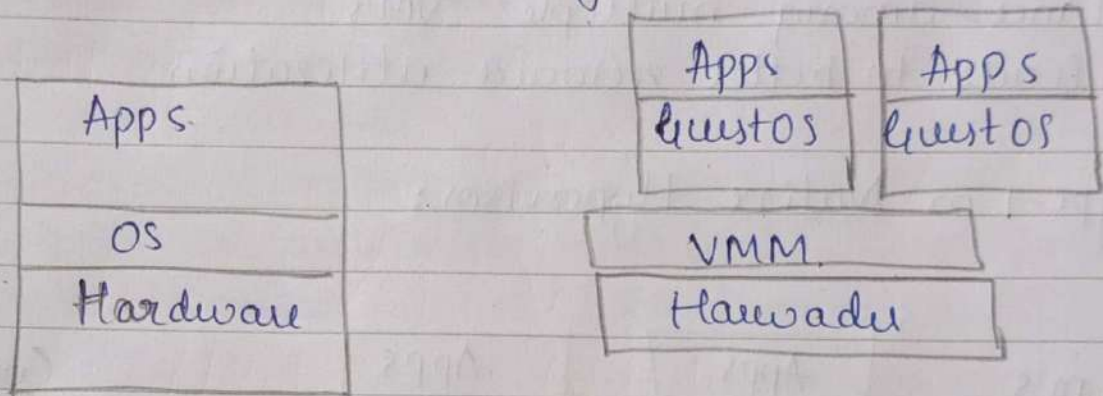 Apps.
OS
Hardware
Apps
Guest OS
Apps
Guest OS
VMM
Hawadu